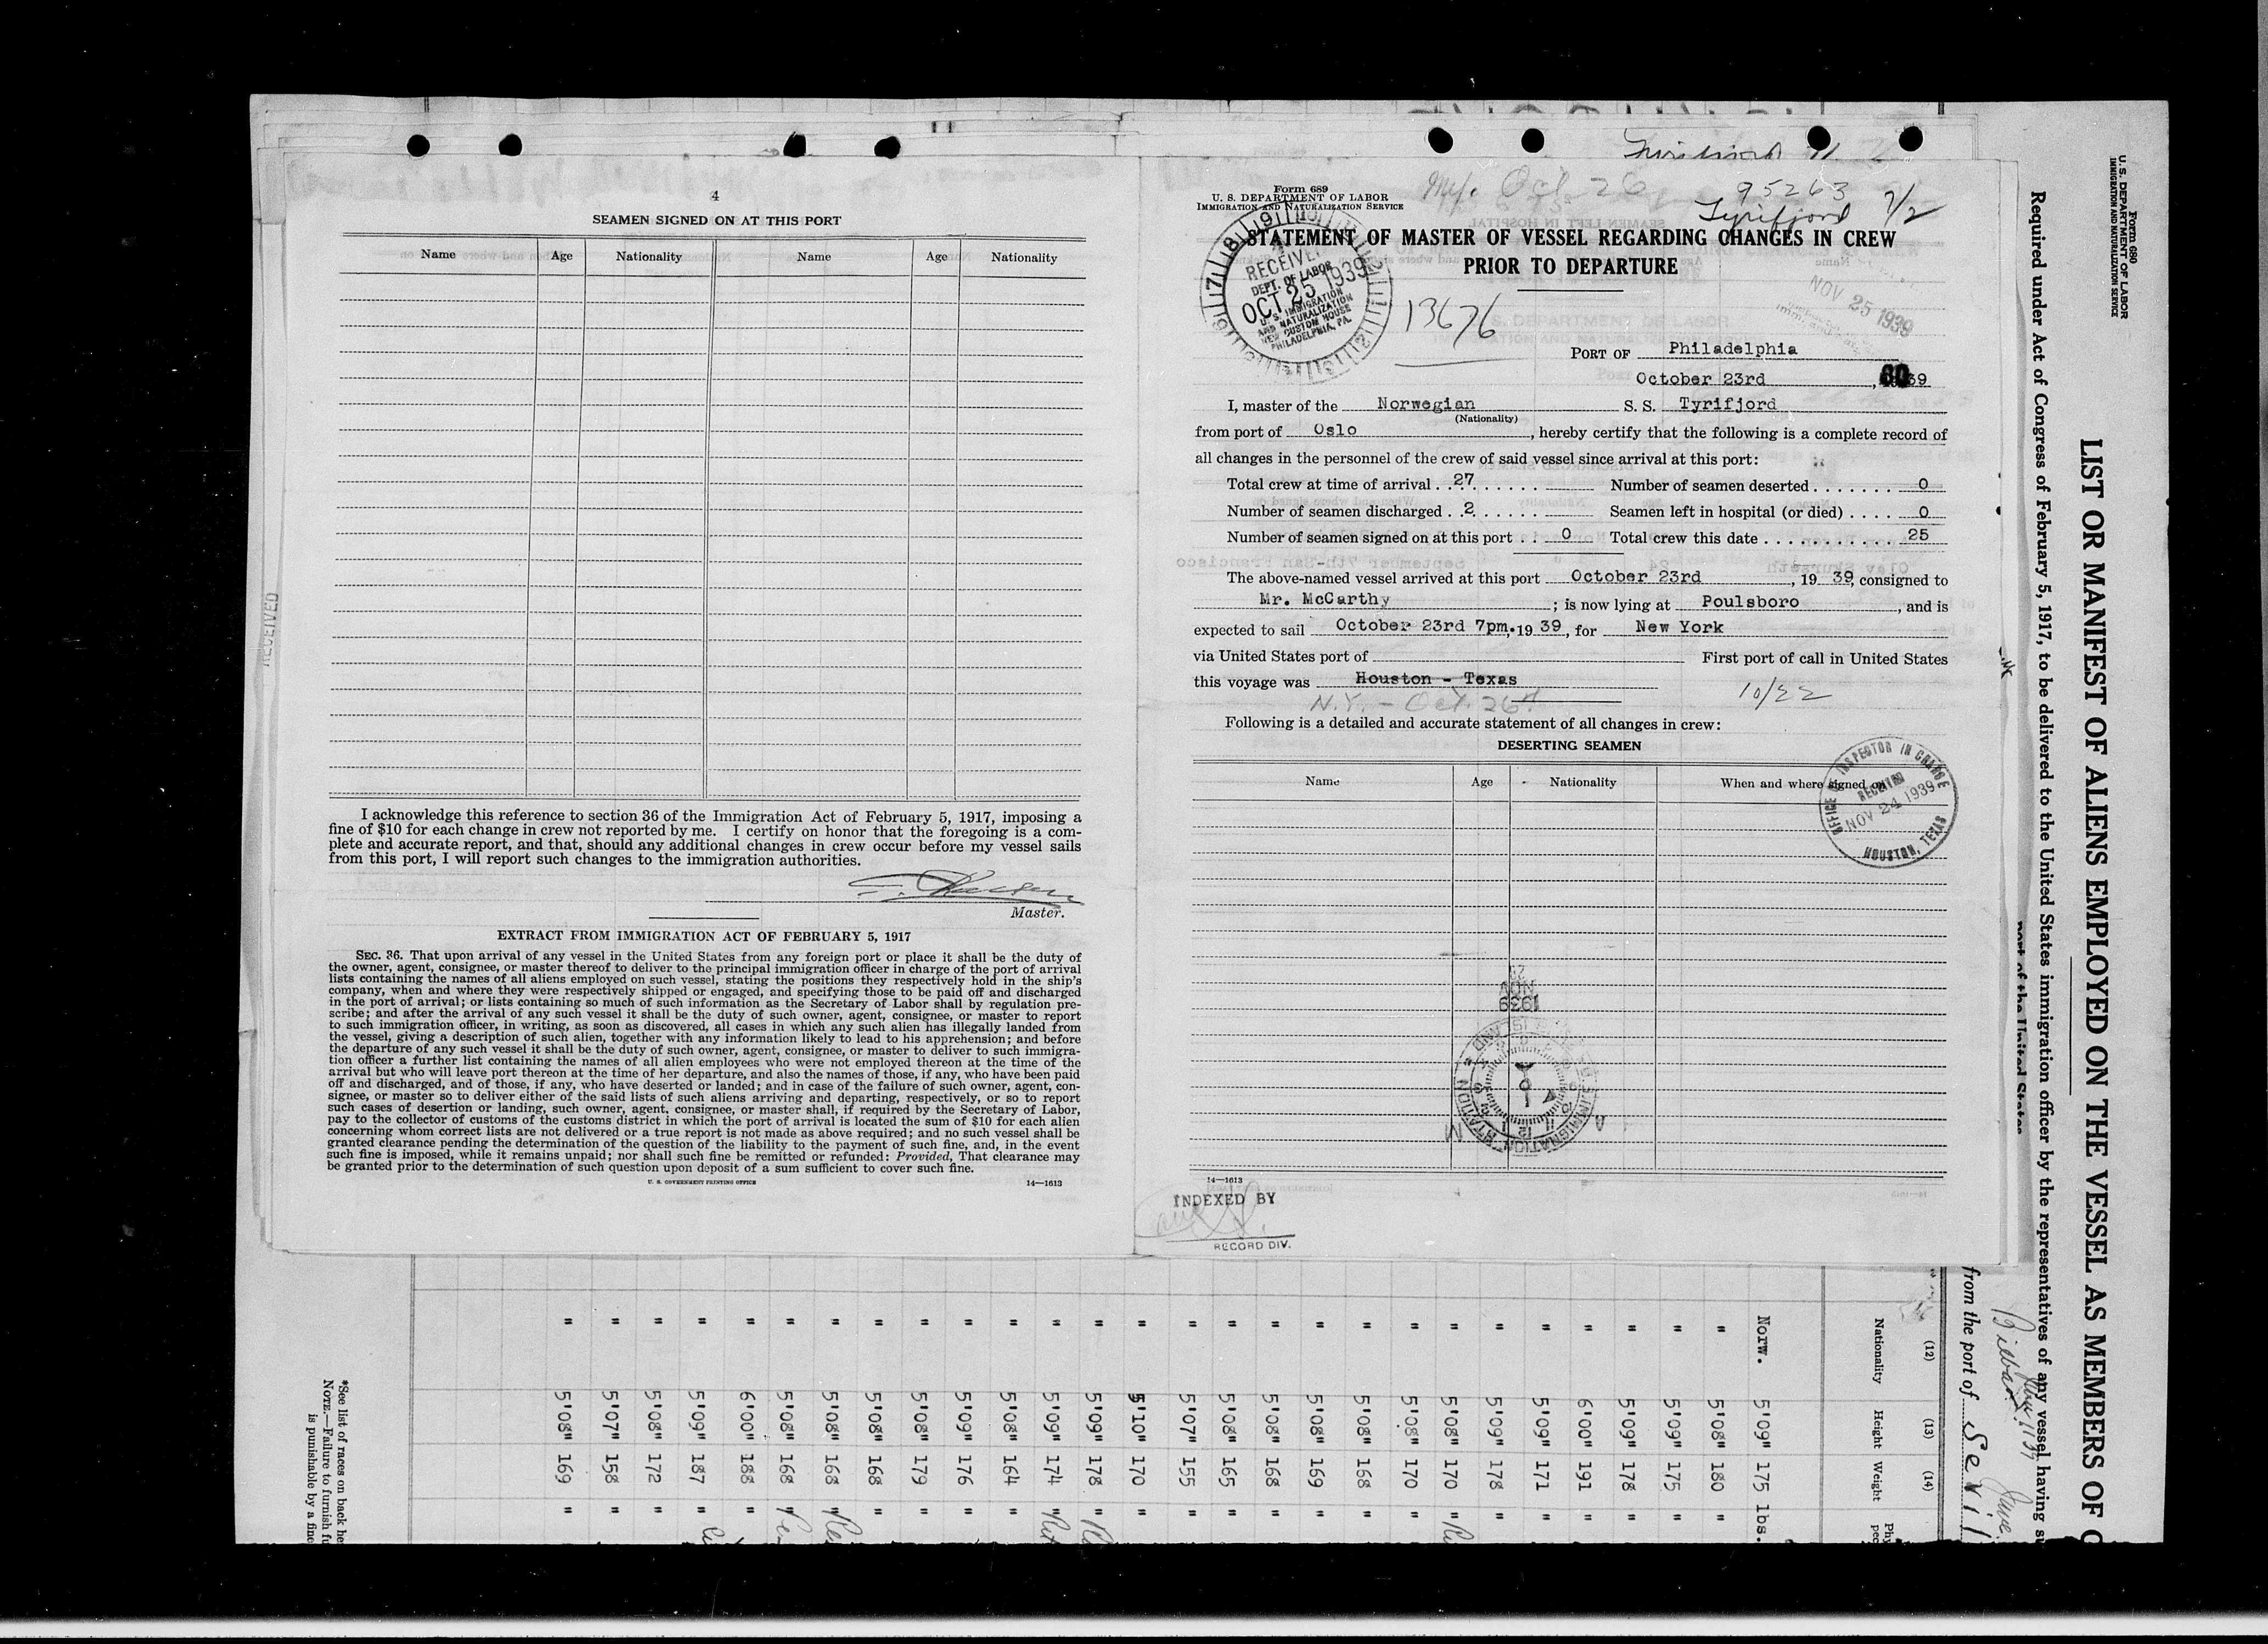 4
SEAMEN SIGNED ON AT THIS PORT
Name Age Nationality Name Age Nationality
I acknowledge this reference to section 36 of the Immigration Act of February 5, 1917, imposing a
fine of $10 for each change in crew not reported by me. I certify on honor that the foregoing is a com-
plete and accurate report, and that, should any additional changes in crew occur before my vessel sails
from this port, I will report such changes to the immigration authorities.
Master.
EXTRACT FROM IMMIGRATION ACT OF FEBRUARY 5, 1917
SEC. 36. That upon arrival of any vessel in the United States from any foreign port or place it shall be the duty of
the owner, agent, consignee, or master thereof to deliver to the principal immigration officer in charge of the port of arrival
lists containing the names of all aliens employed on such vessel, stating the positions they respectively hold in the ship's
company, when and where they were respectively shipped or engaged, and specifying those to be paid off and discharged
in the port of arrival; or lists containing so much of such information as the Secretary of Labor shall by regulation pre-
scribe; and after the arrival of any such vessel it shall be the duty of such owner, agent, consignee, or master to report
to such immigration officer, in writing, as soon as discovered, all cases in which any such alien has illegally landed from
the vessel, giving a description of such alien, together with any information likely to lead to his apprehension; and before
the departure of any such vessel it shall be the duty of such owner, agent, consignee, or master to deliver to such immigra-
tion officer a further list containing the names of all alien employees who were not employed thereon at the time of the
arrival but who will leave port thereon at the time of her departure, and also the names of those, if any, who have been paid
off and discharged, and of those, if any, who have deserted or landed; and in case of the failure of such owner, agent, con-
signee, or master so to deliver either of the said lists of such aliens arriving and departing, respectively, or so to report
such cases of desertion or landing, such owner, agent, consignee, or master shall, if required by the Secretary of Labor,
pay to the collector of customs of the customs district in which the port of arrival is located the sum of $10 for each alien
concerning whom correct lists are not delivered or a true report is not made as above required; and no such vessel shall be
granted clearance pending the determination of the question of the liability to the payment of such fine, and, in the event
such fine is imposed, while it remains unpaid; nor shall such fine be remitted or refunded: Provided, That clearance may
be granted prior to the determination of such question upon deposit of a sum sufficient to cover such fine.
U. S. GOVERNMENT PRINTING OFFICE 14—1613
Form 689
U. S. DEPARTMENT OF LABOR
IMMIGRATION AND NATURALIZATION SERVICE
Oct 26
95263 7/2
Tyrifjord
STATEMENT OF MASTER OF VESSEL REGARDING CHANGES IN CREW
PRIOR TO DEPARTURE
RECEIVED
DEPT. OF LABOR
OCT 25 1939
U. S. IMMIGRATION
AND NATURALIZATION
NEW CUSTOM HOUSE
PHILADELPHIA, PA.
13676
NOV 25 1939
PORT OF Philadelphia
October 23rd, 1939
60
I, master of the Norwegian S. S. Tyrifjord
(Nationality)
from port of Oslo, hereby certify that the following is a complete record of
all changes in the personnel of the crew of said vessel since arrival at this port:
Total crew at time of arrival . . 27 . . . . . . . Number of seamen deserted . . . . . . . 0
Number of seamen discharged . . 2 . . . . . . Seamen left in hospital (or died) . . . . 0
Number of seamen signed on at this port . . 0 Total crew this date . . . . . . . . . . . 25
The above-named vessel arrived at this port October 23rd, 19 39, consigned to
Mr. McCarthy; is now lying at Poulsboro, and is
expected to sail October 23rd 7pm. 19 39, for New York
via United States port of First port of call in United States
this voyage was Houston - Texas
N.Y. - Oct. 26th 10/22
Following is a detailed and accurate statement of all changes in crew:
DESERTING SEAMEN
Name Age Nationality When and where signed on
OFFICE OF INSPECTOR IN CHARGE
RECEIVED
NOV 24 1939
HOUSTON, TEXAS
NOV
1939
14—1613
INDEXED BY
RECORD DIV.
Form 680
U. S. DEPARTMENT OF LABOR
IMMIGRATION AND NATURALIZATION SERVICE
LIST OR MANIFEST OF ALIENS EMPLOYED ON THE VESSEL AS MEMBERS OF
Required under Act of Congress of February 5, 1917, to be delivered to the United States immigration officer by the representatives of any vessel having
port of the United States
from the port of
(12) (13) (14)
Nationality Height Weight
Norw. 5'09" 175 lbs.
" 5'08" 180 "
" 5'09" 175 "
" 5'09" 178 "
" 6'00" 191 "
" 5'09" 171 "
" 5'09" 178 "
" 5'08" 170 "
" 5'08" 170 "
" 5'08" 168 "
" 5'08" 169 "
" 5'08" 168 "
" 5'08" 165 "
" 5'07" 155 "
" 5'10" 170 "
" 5'09" 178 "
" 5'09" 174 "
" 5'08" 164 "
" 5'09" 176 "
" 5'08" 179 "
" 5'08" 168 "
" 5'08" 168 "
" 5'08" 168 "
" 6'00" 188 "
" 5'09" 187 "
" 5'08" 172 "
" 5'07" 158 "
" 5'08" 169 "
*See list of races on back
NOTE.—Failure to furnish
is punishable by a fine